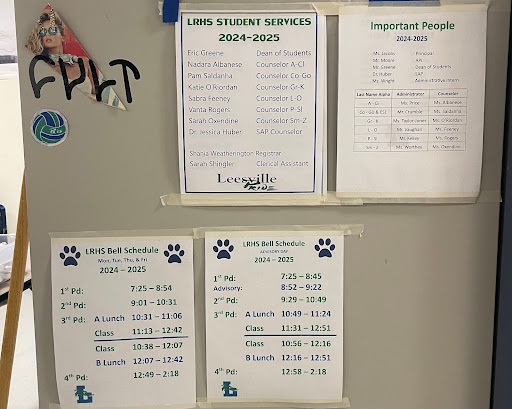 CULT
LRHS STUDENT SERVICES
2024-2025
Eric Greene Dean of Students
Nadara Albanese Counselor A-Cl
Pam Saldanha Counselor Co-Go
Katie O'Riordan Counselor Gr-K
Sabra Feeney Counselor L-O
Varna Rogers Counselor P-Sl
Sarah Oxendine Counselor Sm-Z
Dr. Jessica Huber SAP Counselor
Shania Weatherington Registrar
Sarah Shingler Clerical Assistant
Leesville
PRIDE
Important People
2024-2025
Principal
Mr. Moore API
Mr. Greene Dean of Students
Dr. Huber SAP
Ms. Wright Administrative Intern
Last Name Alpha Administrator Counselor
A - Cl Ms. Price Ms. Albanese
Mr. Crumbie Ms. Saldanha
Gr - K Ms. Taylor-Jones Ms. O'Riordan
L - O Mr. Vaughan Ms. Feeney
P - Sl Ms. Kelley Ms. Rogers
Sm - Z Ms. Worthee Ms. Oxendine
LRHS Bell Schedule
Mon, Tue, Thu, & Fri
2024 – 2025
1st Pd: 7:25 - 8:54
2nd Pd: 9:01 - 10:31
3rd Pd: A Lunch 10:31 – 11:06
Class 11:13 – 12:42
Class 10:38 – 12:07
B Lunch 12:07 – 12:42
4th Pd: 12:49 – 2:18
L
LRHS Bell Schedule
ADVISORY DAY
2024 – 2025
1st Pd: 7:25 - 8:45
Advisory: 8:52 – 9:22
2nd Pd: 9:29 – 10:49
3rd Pd: A Lunch 10:49 – 11:24
Class 11:31 – 12:51
Class 10:56 – 12:16
B Lunch 12:16 – 12:51
4th Pd: 12:58 – 2:18
L